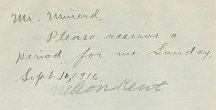 Mr. Minerd,
Please reserve a
period for me Sunday,
Sept 10, 1916.
Nelson Kent